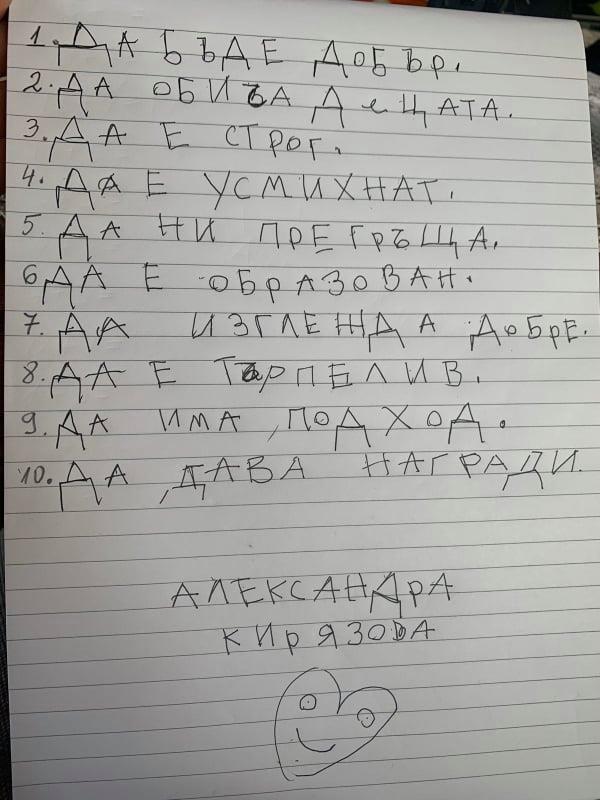 1. ДА БЪДЕ ДОБЪР.
2. ДА ОБИЧА ДЕЦАТА.
3. ДА Е СТРОГ.
4. ДА Е УСМИХНАТ.
5. ДА НИ ПРЕГРЪЩА.
6 ДА Е ОБРАЗОВАН.
7. ДА ИЗГЛЕЖДА ДОБРЕ.
8. ДА Е ТЪРПЕЛИВ.
9. ДА ИМА ПОДХОД.
10. ДА ДАВА НАГРАДИ.
АЛЕКСАНДРА
КИРЯЗОВА